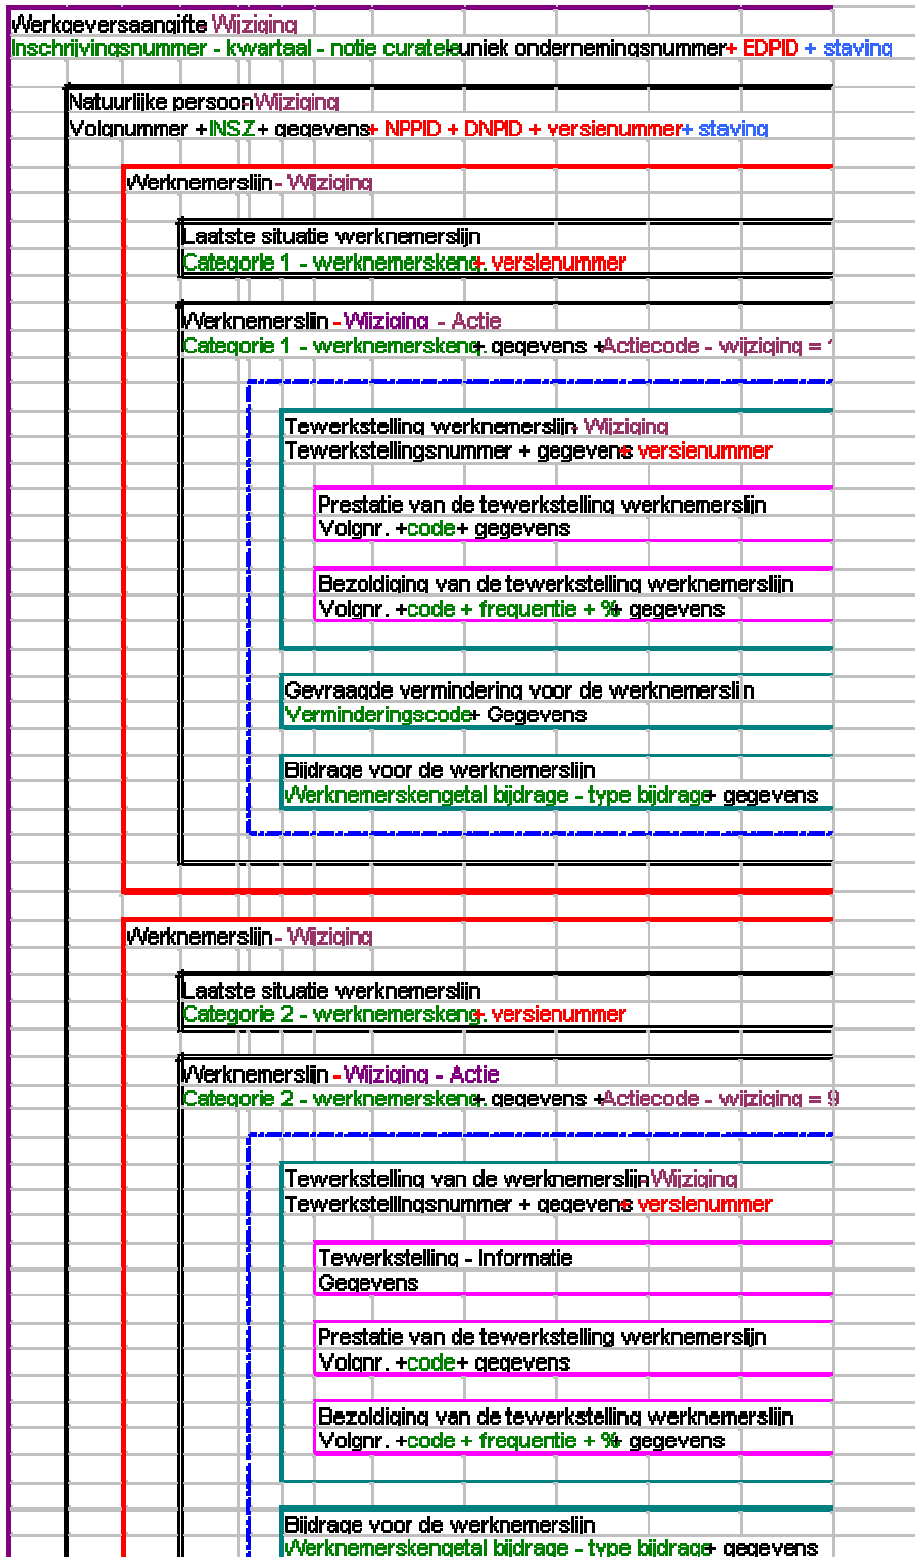 Werkgeversaangifte Wijziging
Inschrijvingsnummer - kwartaal - notie curatele uniek ondernemingsnummer + EDPID + staving
Natuurlijke persoon Wijziging
Volgnummer + INSZ + gegevens + NPPID + DNPID + versienummer + staving
Werknemerslijn - Wijziging
Laatste situatie werknemerslijn
Categorie 1 - werknemerskeng. + versienummer
Werknemerslijn - Wijziging - Actie
Categorie 1 - werknemerskeng. + gegevens + Actiecode - wijziging =
Tewerkstelling werknemerslijn Wijziging
Tewerkstellingsnummer + gegevens + versienummer
Prestatie van de tewerkstelling werknemerslijn
Volgnr. + code + gegevens
Bezoldiging van de tewerkstelling werknemerslijn
Volgnr. + code + frequentie + % + gegevens
Gevraagde vermindering voor de werknemerslijn
Verminderingscode + Gegevens
Bijdrage voor de werknemerslijn
Werknemerskengetal bijdrage - type bijdrage + gegevens
Werknemerslijn - Wijziging
Laatste situatie werknemerslijn
Categorie 2 - werknemerskeng. + versienummer
Werknemerslijn - Wijziging - Actie
Categorie 2 - werknemerskeng. + gegevens + Actiecode - wijziging = 9
Tewerkstelling van de werknemerslijn Wijziging
Tewerkstellingsnummer + gegevens + versienummer
Tewerkstelling - Informatie
Gegevens
Prestatie van de tewerkstelling werknemerslijn
Volgnr. + code + gegevens
Bezoldiging van de tewerkstelling werknemerslijn
Volgnr. + code + frequentie + % + gegevens
Bijdrage voor de werknemerslijn
Werknemerskengetal bijdrage - type bijdrage + gegevens